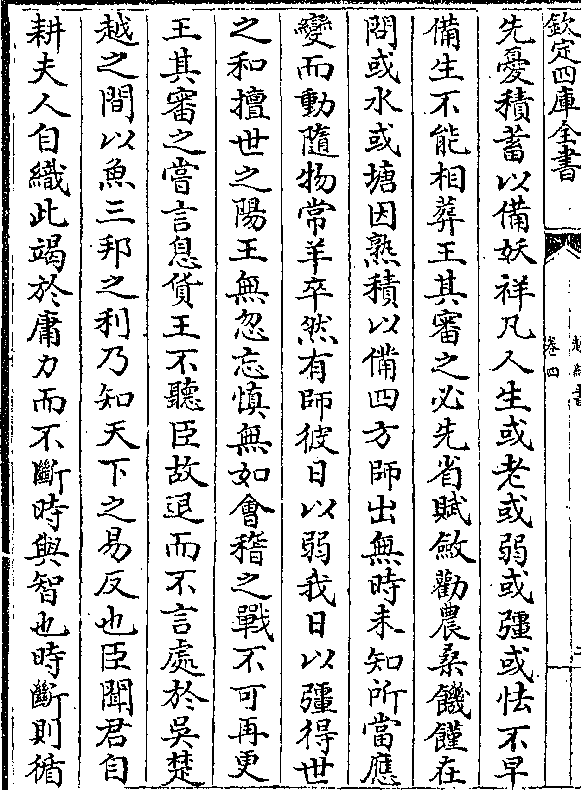 欽定四庫全書
越絕書
卷四
先憂積蓄以備妖祥凡人生或老或弱或彊或怯不早
備生不能相葬王其審之必先省賦斂勸農桑饑饉在
問或水或塘因熟積以備四方師出無時未知所當應
變而動隨物常羊卒然有師彼日以弱我日以彊得世
之和擅世之陽王無忽忘慎無如會稽之戰不可再更
王其審之嘗言息貨王不聽臣故退而不言處於吳楚
越之間以魚三邦之利乃知天下之易反也臣聞君自
耕夫人自織此竭於庸力而不斷時與智也時斷則循